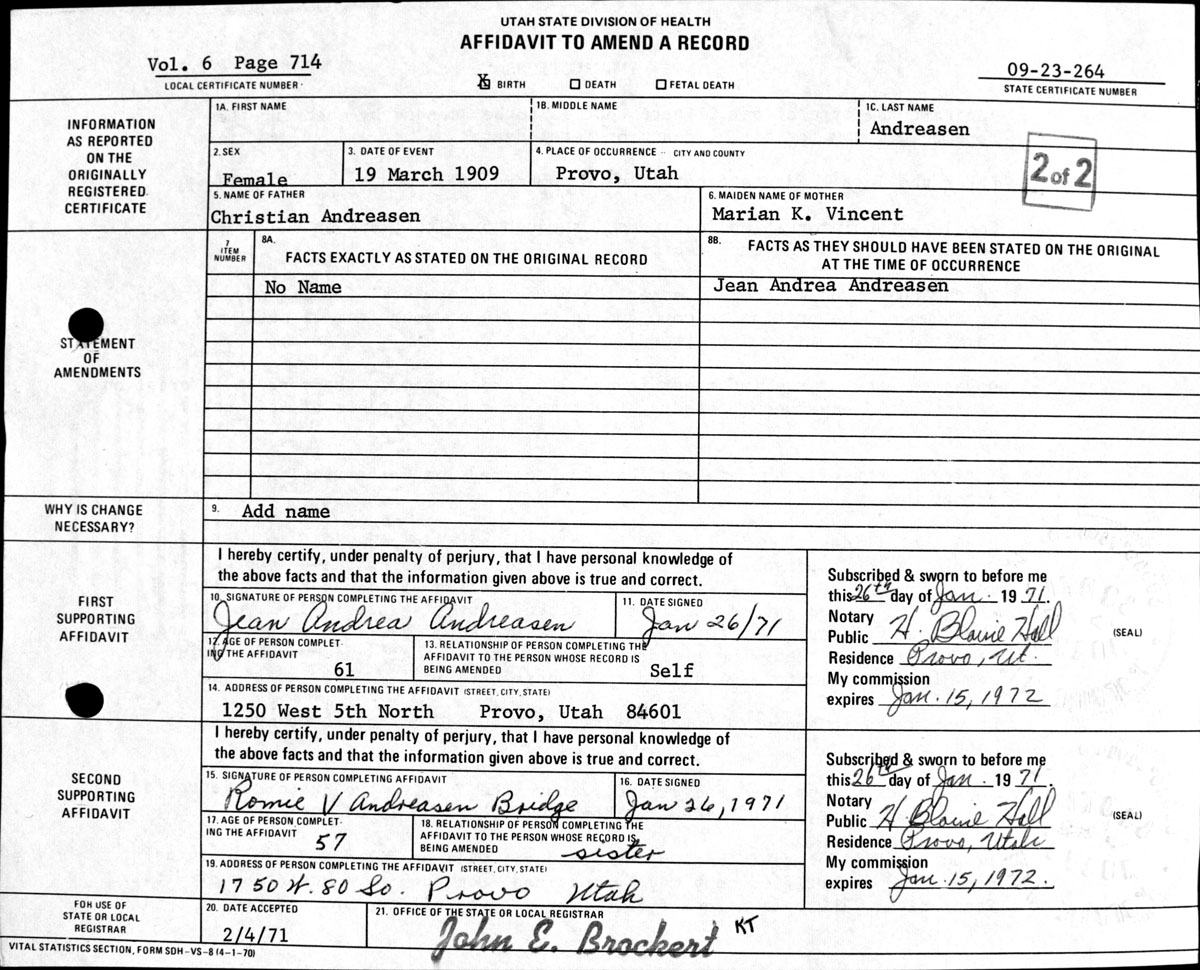 UTAH STATE DIVISION OF HEALTH
AFFIDAVIT TO AMEND A RECORD
Vol. 6 Page 714
LOCAL CERTIFICATE NUMBER
X BIRTH DEATH FETAL DEATH
09-23-264
STATE CERTIFICATE NUMBER
INFORMATION AS REPORTED ON THE ORIGINALLY REGISTERED CERTIFICATE
1A. FIRST NAME
1B. MIDDLE NAME
1C. LAST NAME
Andreasen
2. SEX
Female
3. DATE OF EVENT
19 March 1909
4. PLACE OF OCCURRENCE -- CITY AND COUNTY
Provo, Utah
2 of 2
5. NAME OF FATHER
Christian Andreasen
6. MAIDEN NAME OF MOTHER
Marian K. Vincent
STATEMENT OF AMENDMENTS
7 ITEM NUMBER
8A.
FACTS EXACTLY AS STATED ON THE ORIGINAL RECORD
8B. FACTS AS THEY SHOULD HAVE BEEN STATED ON THE ORIGINAL
AT THE TIME OF OCCURRENCE
No Name
Jean Andrea Andreasen
WHY IS CHANGE NECESSARY?
9. Add name
FIRST SUPPORTING AFFIDAVIT
I hereby certify, under penalty of perjury, that I have personal knowledge of
the above facts and that the information given above is true and correct.
10. SIGNATURE OF PERSON COMPLETING THE AFFIDAVIT
Jean Andrea Andreasen
11. DATE SIGNED
Jan 26/71
12. AGE OF PERSON COMPLET-
ING THE AFFIDAVIT
61
13. RELATIONSHIP OF PERSON COMPLETING THE
AFFIDAVIT TO THE PERSON WHOSE RECORD IS
BEING AMENDED
Self
14. ADDRESS OF PERSON COMPLETING THE AFFIDAVIT (STREET, CITY, STATE)
1250 West 5th North Provo, Utah 84601
Subscribed & sworn to before me
this 26th day of Jan. 19 71.
Notary
Public H. Blaine Hall
(SEAL)
Residence Provo, Ut.
My commission
expires Jan. 15, 1972
SECOND SUPPORTING AFFIDAVIT
I hereby certify, under penalty of perjury, that I have personal knowledge of
the above facts and that the information given above is true and correct.
15. SIGNATURE OF PERSON COMPLETING AFFIDAVIT
Romie V Andreasen Bridge
16. DATE SIGNED
Jan 26, 1971
17. AGE OF PERSON COMPLET-
ING THE AFFIDAVIT
57
18. RELATIONSHIP OF PERSON COMPLETING THE
AFFIDAVIT TO THE PERSON WHOSE RECORD IS
BEING AMENDED
sister
19. ADDRESS OF PERSON COMPLETING THE AFFIDAVIT (STREET, CITY, STATE)
1750 W. 80 So. Provo Utah
Subscribed & sworn to before me
this 26th day of Jan. 19 71.
Notary
Public H. Blaine Hall
(SEAL)
Residence Provo, Utah
My commission
expires Jan. 15, 1972.
FOR USE OF STATE OR LOCAL REGISTRAR
20. DATE ACCEPTED
2/4/71
21. OFFICE OF THE STATE OR LOCAL REGISTRAR
John E. Brockert KT
VITAL STATISTICS SECTION, FORM SDH-VS-8 (4-1-70)